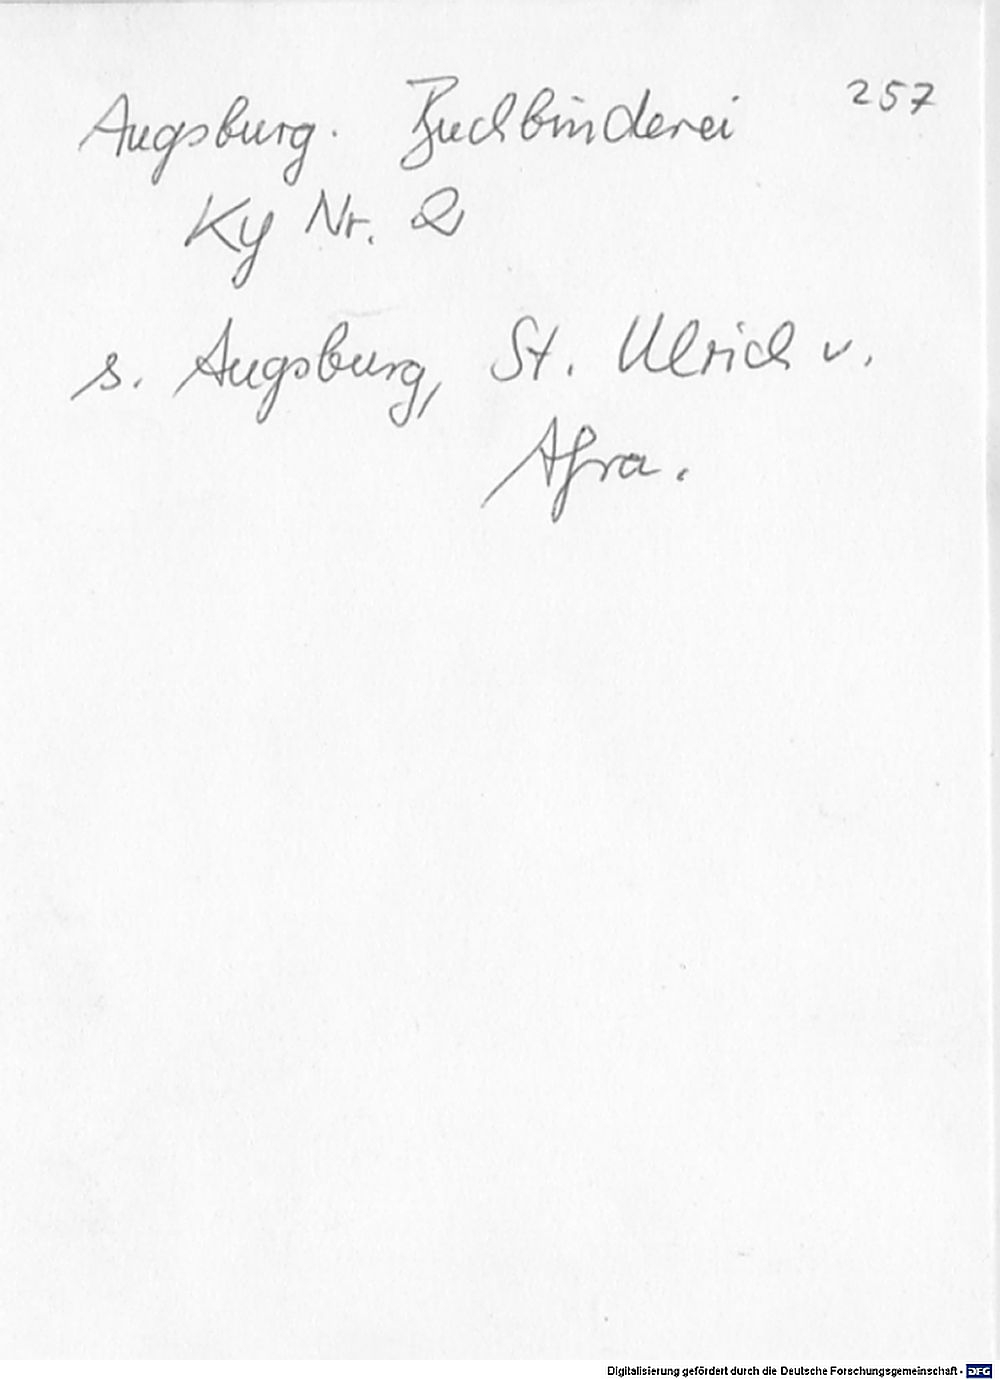 257
Augsburg. Buchbinderei
Ky Nr. 2
s. Augsburg, St. Ulrich u.
Afra.
Digitalisierung gefördert durch die Deutsche Forschungsgemeinschaft - DFG